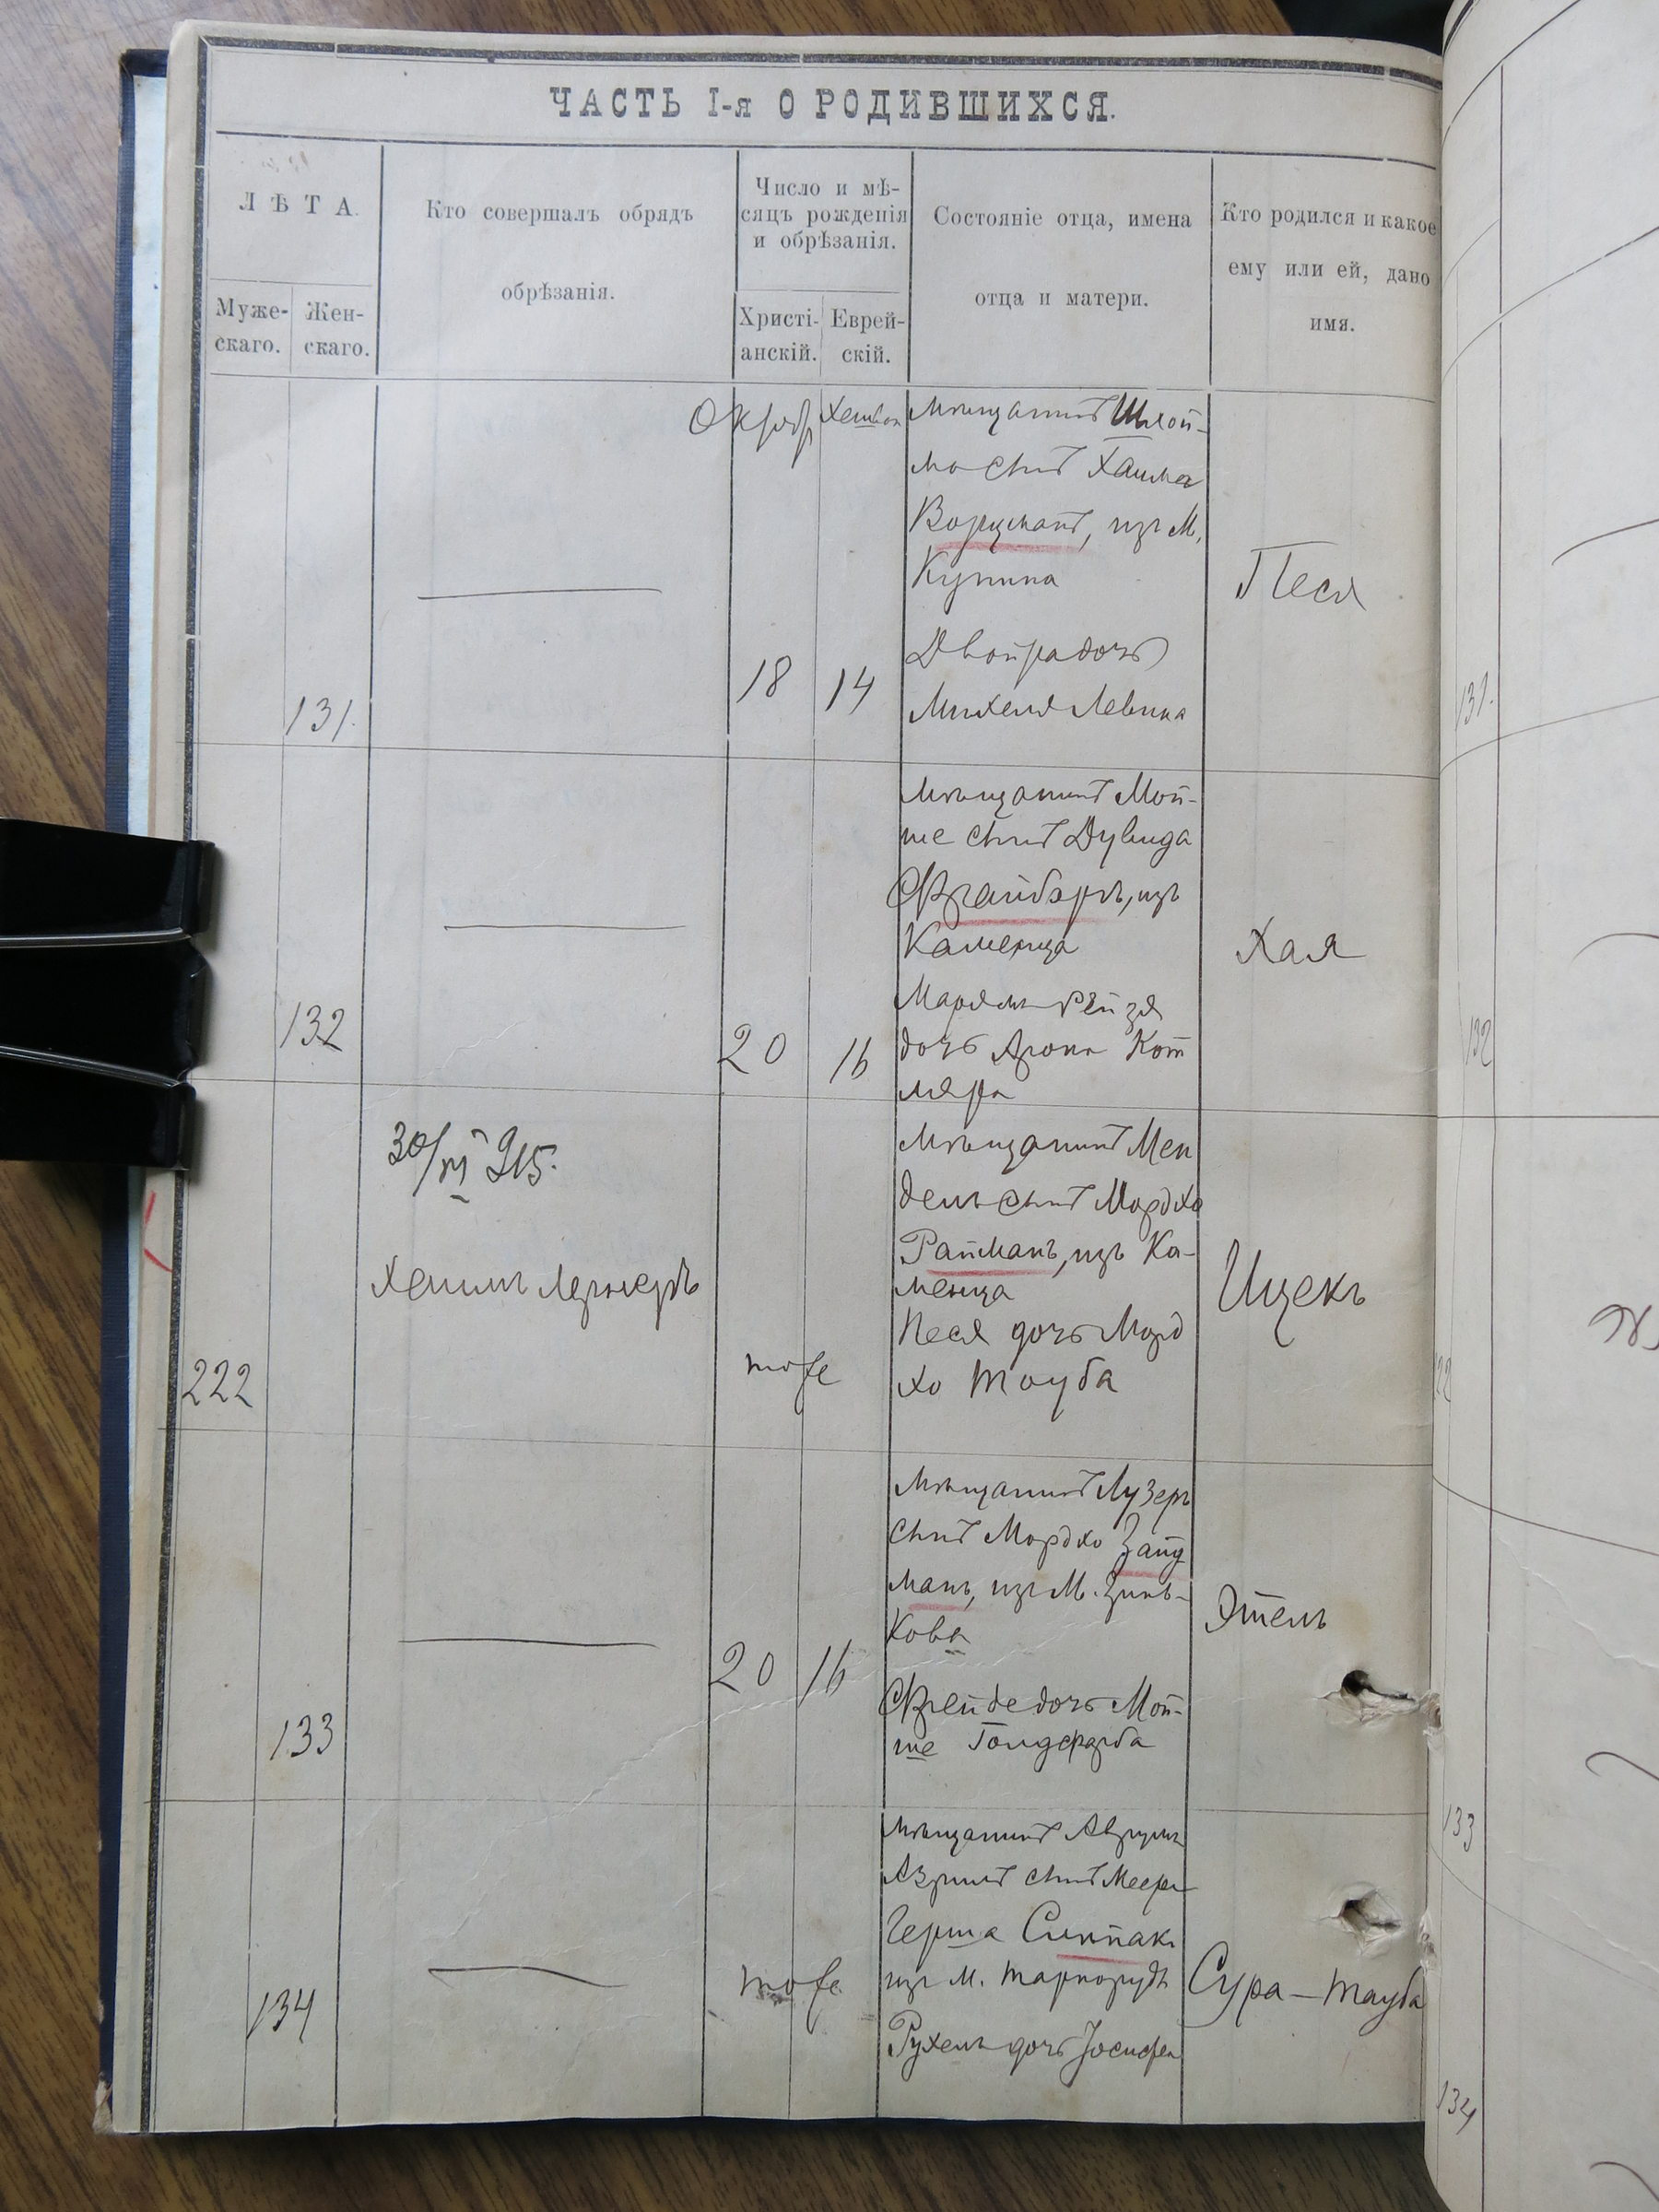 ЧАСТЬ I-я О РОДИВШИХСЯ.
ЛѢТА.
Муже-
скаго.
Жен-
скаго.
Кто совершалъ обрядъ
обрѣзанія.
Число и мѣ-
сяцъ рожденія
и обрѣзанія.
Христі-
анскій.
Еврей-
скій.
Состояніе отца, имена
отца и матери.
Кто родился и какое
ему или ей, дано
имя.
131.
18
14
мѣщанинъ Шлой-
ма сынъ Хаима
изъ М.
Купина
Двойра дочь
Михеля Левина
Песя
132
20
16
мѣщанинъ Мой-
ше сынъ Дувида
изъ
Каменца
Марямъ Рейзя
дочь Арона Кот
ляра
Хая
222
30/VI 915.
Хаимъ Лернеръ
тоже
мѣщанинъ Мен
дель сынъ Мордхо
Райманъ, изъ Ка-
менца
Песя дочь Морд
хо Тауба
Ицекъ
133
20
16
мѣщанинъ Лузеръ
сынъ Мордхо Зайд
манъ, изъ М. Зинь-
кова
дочь Мой-
ше Голдфарба
Этель
134
тоже
мѣщанинъ Аврумъ
Азрилъ сынъ Меера
Герша
изъ М. Тарноруды
Рухель дочь Іосифа
Сура-Тауба
131.
132
22
133
134